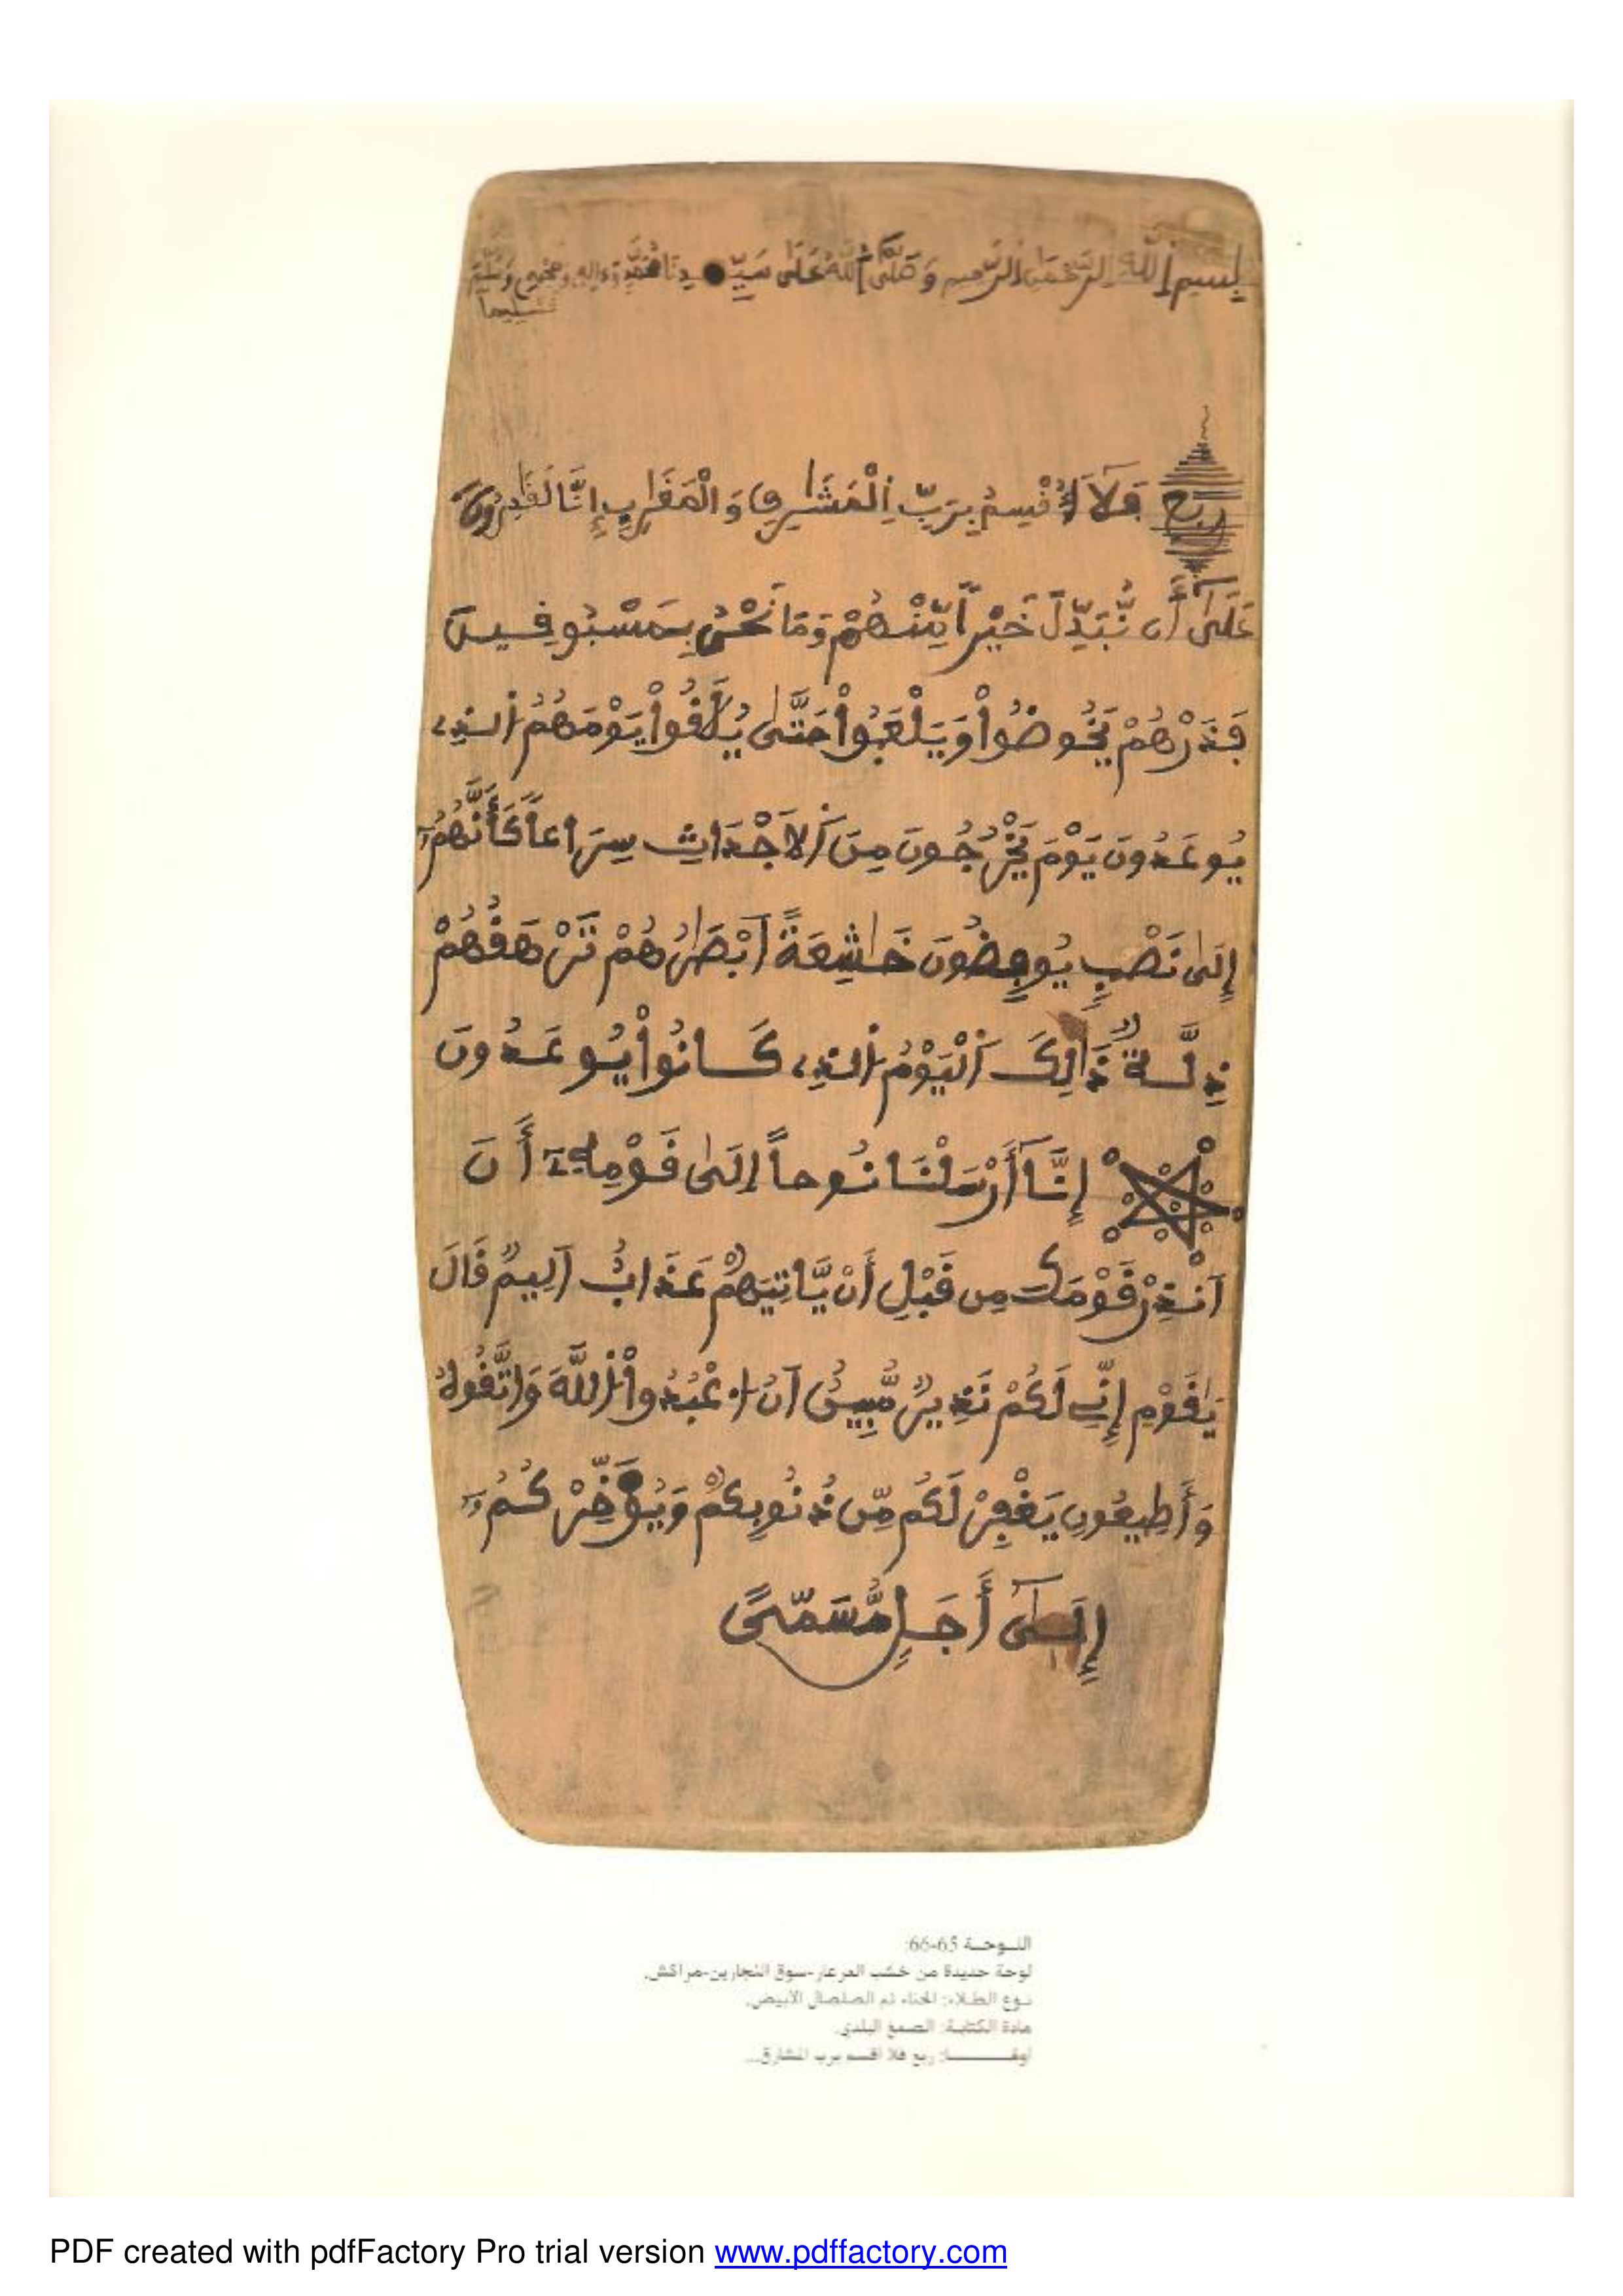 بِسْمِ اللَّهِ الرَّحْمَٰنِ الرَّحِيمِ وَصَلَّى اللَّهُ عَلَى سَيِّدِنَا مُحَمَّدٍ وَءَالِهِ وَصَحْبِهِ وَسَلَّمَ
تَسْلِيما
ربع فَلَا أُقْسِمُ بِرَبِّ اِلْمَشَٰرِقِ وَالْمَغَٰرِبِ إِنَّا لَقَٰدِرُونَ
عَلَىٰٓ أَن نُّبَدِّلَ خَيْراً مِّنْهُمْ وَمَا نَحْنُ بِمَسْبُوقِينَ
فَذَرْهُمْ يَخُوضُواْ وَيَلْعَبُواْ حَتَّىٰ يُلَٰقُواْ يَوْمَهُمُ اُلذِے
يُوعَدُونَ يَوْمَ يَخْرُجُونَ مِنَ اَلَاجْدَاثِ سِرَاعاً كَأَنَّهُمُۥٓ
إِلَىٰ نَصْبٍ يُوفِضُونَ خَٰشِعَةً اَبْصَٰرُهُمْ تَرْهَقُهُمْ
ذِلَّةٌ ذَٰلِكَ اَلْيَوْمُ اُلذِے كَانُواْ يُوعَدُونَ
إِنَّآ أَرْسَلْنَا نُوحاً إِلَىٰ قَوْمِهِۦٓ أَنَ
اَنذِرْ قَوْمَكَ مِن قَبْلِ أَنْ يَّاتِيَهُمْ عَذَابٌ اَلِيمٌ قَالَ
يَٰقَوْمِ إِنِّے لَكُمْ نَذِيرٌ مُّبِينٌ اَنُ اُ۟عْبُدُواْ اُللَّهَ وَاتَّقُوهُ
وَأَطِيعُونِ يَغْفِرْ لَكُم مِّن ذُنُوبِكُمْ وَيُؤَخِّرْكُمُۥٓ
إِلَىٰٓ أَجَلٍ مُّسَمّىً
اللـوحـة 65-66:
لوحة جديدة من خشب العرعار-سوق النجارين-مراكش.
نـوع الطـلاء: الحناء ثم الصلصال الأبيض.
مادة الكتابـة: الصمغ البلدي.
أوفـــــا: ربع فلا أقسم برب المشارق...
PDF created with pdfFactory Pro trial version www.pdffactory.com